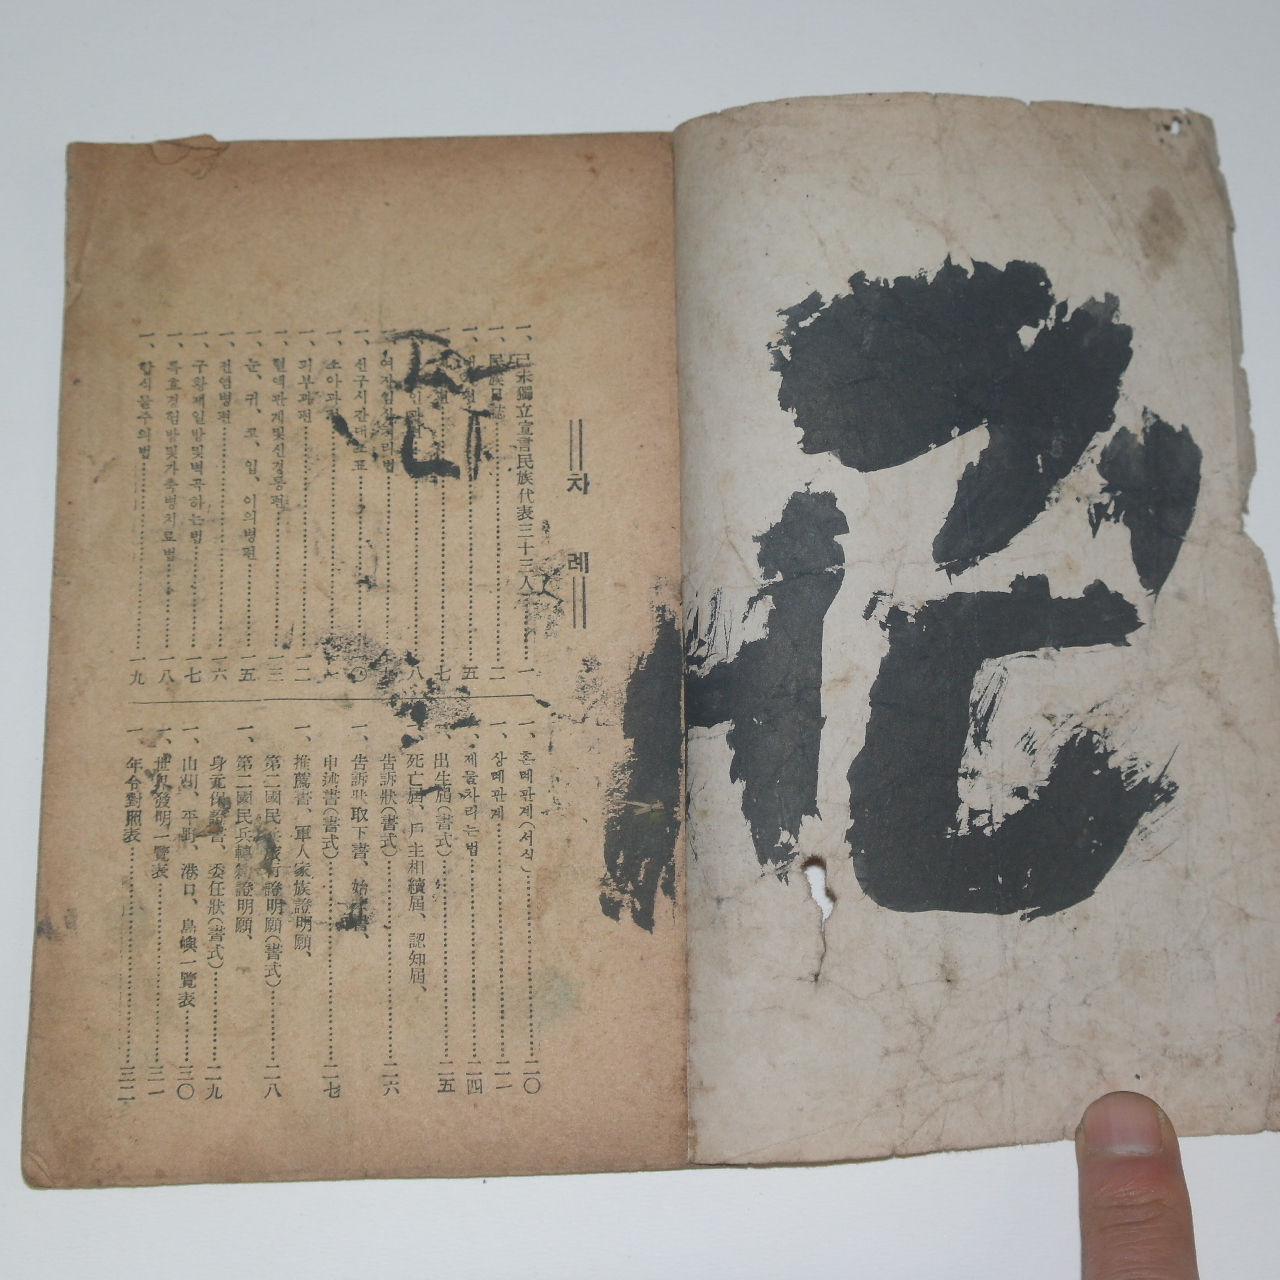 차 례
一、己未獨立宣言民族代表三十三人…一
一、民族日誌…二
一、…五
一、…七
一、…八
一、여자임신…리법
一、신구시간대조표…一〇
一、소아과편…一一
一、피부과편…一二
一、혈액관계및신경통편…一三
一、눈、귀、코、입、이의병편…一五
一、전염병편…一六
一、구황제일방및벽곡하는법…一七
一、특효경험방및가축병치료법…一八
一、합식물주의법…一九
一、혼례관계(서식)…二〇
一、상례관계…二一
一、제물차리는법…二四
出生屆(書式)…二五
死亡屆、戶主相續屆、認知屆、
告訴狀(書式)…二六
一、告訴狀取下書、始末書、
申述書(書式)…二七
一、推薦書、軍人家族證明願、
第二國民兵旅行證明願(書式)…二八
一、第二國民兵轉籍證明願、
身元保證書、委任狀(書式)…二九
一、山川、平野、港口、島嶼一覽表…三〇
一、世界發明一覽表…三一
一、年令對照表…三二